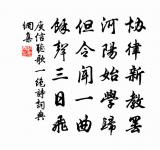 協律新教罷
河陽始學歸
但令聞一曲
餘聲三日飛
庾信聽歌一絕詩詞典
網集